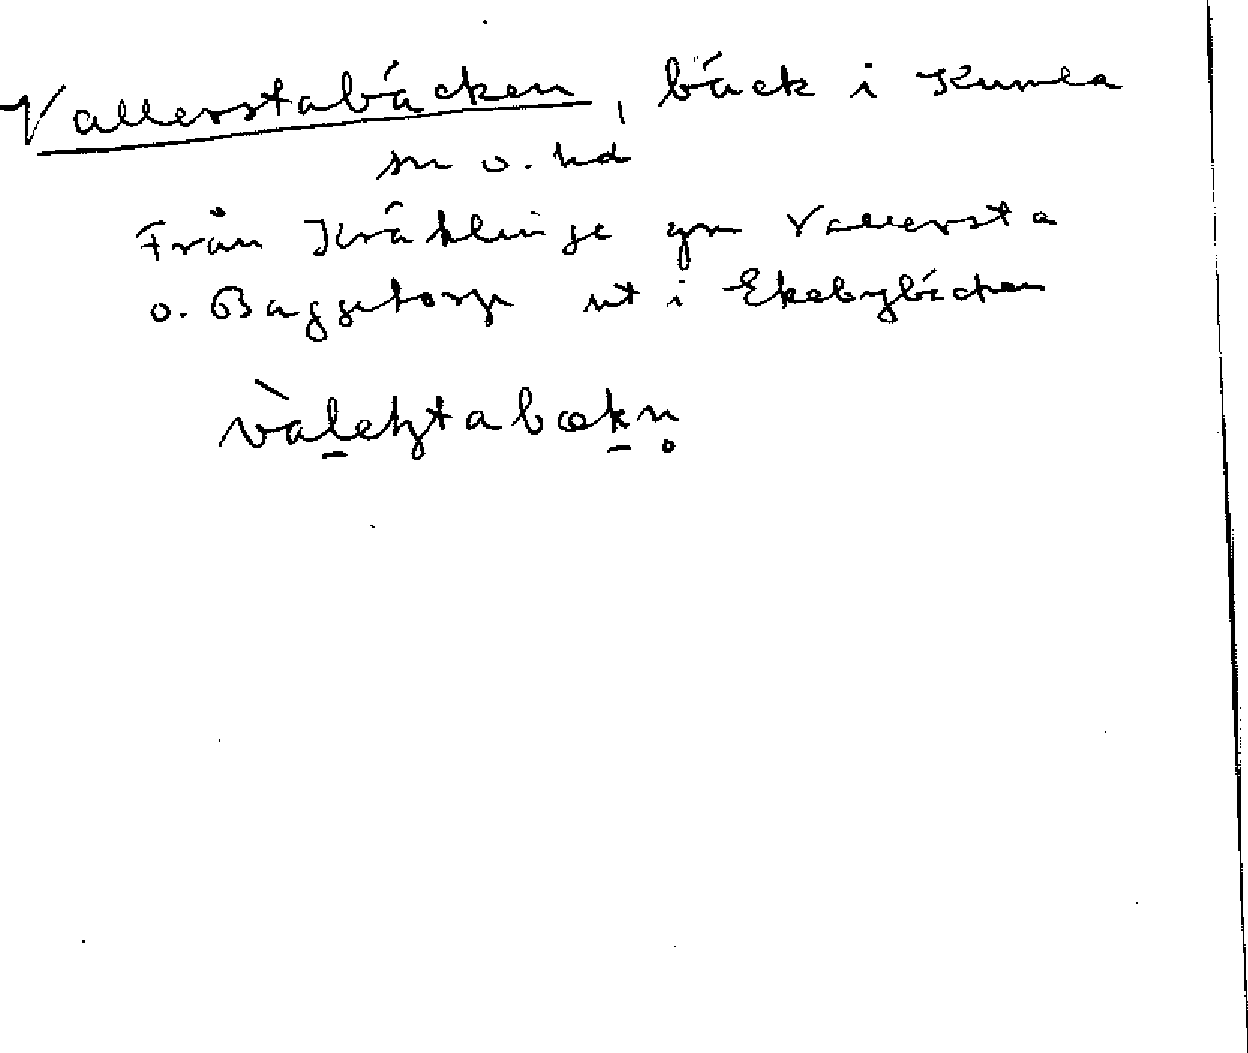 Vallerstabäcken, bäck i Kumla
sn o. hd
Från Kräklinge gm Vallersta
o. Baggetorp ut i Ekebybäcken